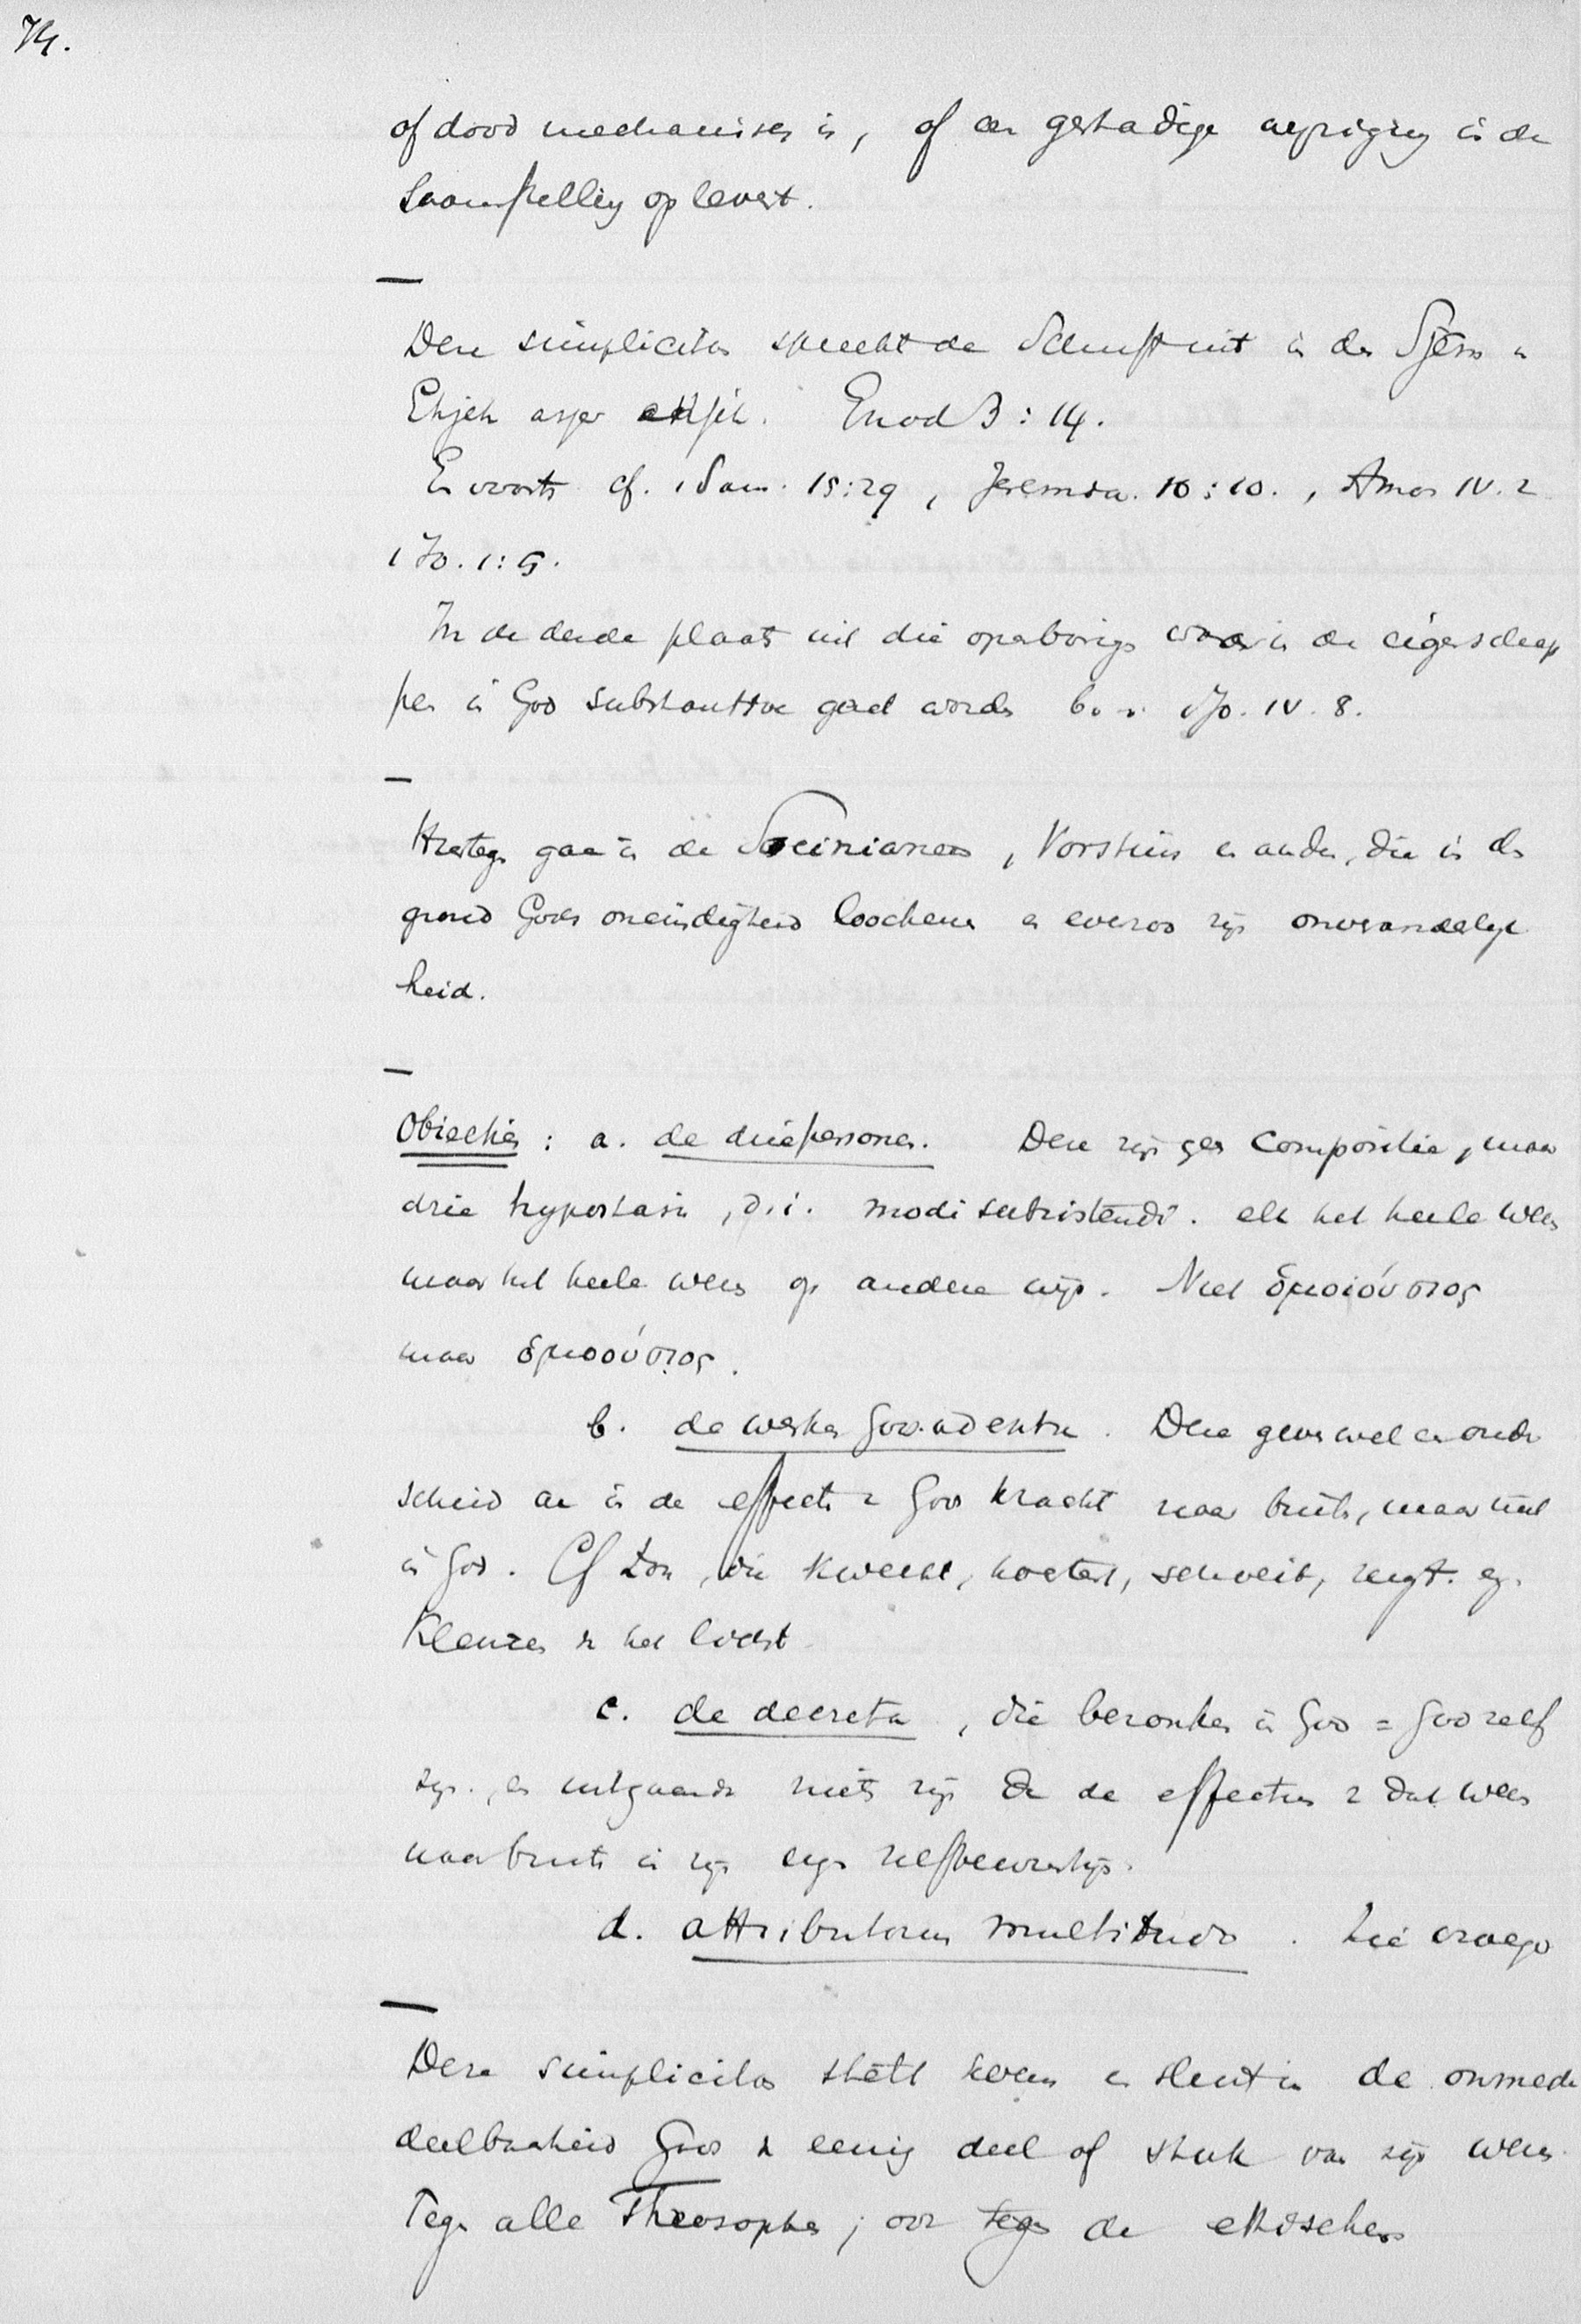 74.
of dood mechanisme is, of een gestadige wijziging in de
saamstelling oplevert.
—
Deze simpliciteit spreekt de Schrift uit in de Sjem
Ehjeh asjer ehjeh. Exod 3:14.
En voorts cf. 1 Sam. 15:29, Jeremia. 10:10., Amos IV. 2
1 Jo. 1:5.
In de derde plaats uit die openbaring waarin de eigenschap
pen in God substantive gezet worden b.v. 1 Jo. IV. 8.
—
Hiertegen gaan in de Socinianen, Vorstius en anderen, die in den
grond Gods oneindigheid loochenen en evenzoo zijn onveranderlijk
heid.
—
Obiecties: a. de drie personen. Deze zijn geen compositie, maar
drie hypostasen, d.i. modi subsistendi. elk het heele wezen
maar het heele wezen op andere wijs. Niet ὁμοιούσιος
maar ὁμοούσιος.
b. de werken God. ad extra. Deze geven wel een onder
scheid aan in de effecten v Gods kracht naar buiten, maar niet
in God. Cf zon, die kweekt, koestert, schroeit, zengt. en
kleuren v het licht.
c. de decreta, die bezonken in God = God zelf
zijn., en uitgaande niets zijn dan de effecten v dat wezen
naar buiten in zijn eigen zelfbewustzijn.
d. attributorum multitudo. Zie vroeger
—
Deze simpliciteit stelt tevens en sluit in de onmede
deelbaarheid Gods v eenig deel of stuk van zijn wezen.
Tegen alle Theosophen; ook tegen de ethischen